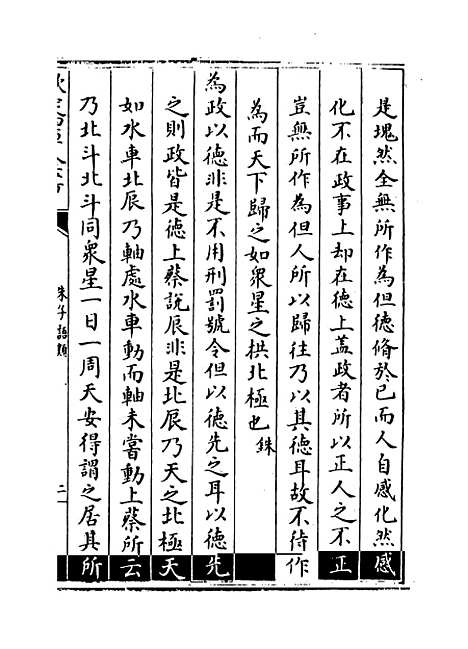 是塊然全無所作為但德脩於已而人自感化然感
化不在政事上却在德上蓋政者所以正人之不正
豈無所作為但人所以歸往乃以其德耳故不待作
為而天下歸之如衆星之拱北極也銖
為政以德非是不用刑罰號令但以德先之耳以德先
之則政皆是德上蔡說辰非是北辰乃天之北極天
如水車北辰乃軸處水車動而軸未嘗動上蔡所云
乃北斗北斗同衆星一日一周天安得謂之居其所
朱子語類